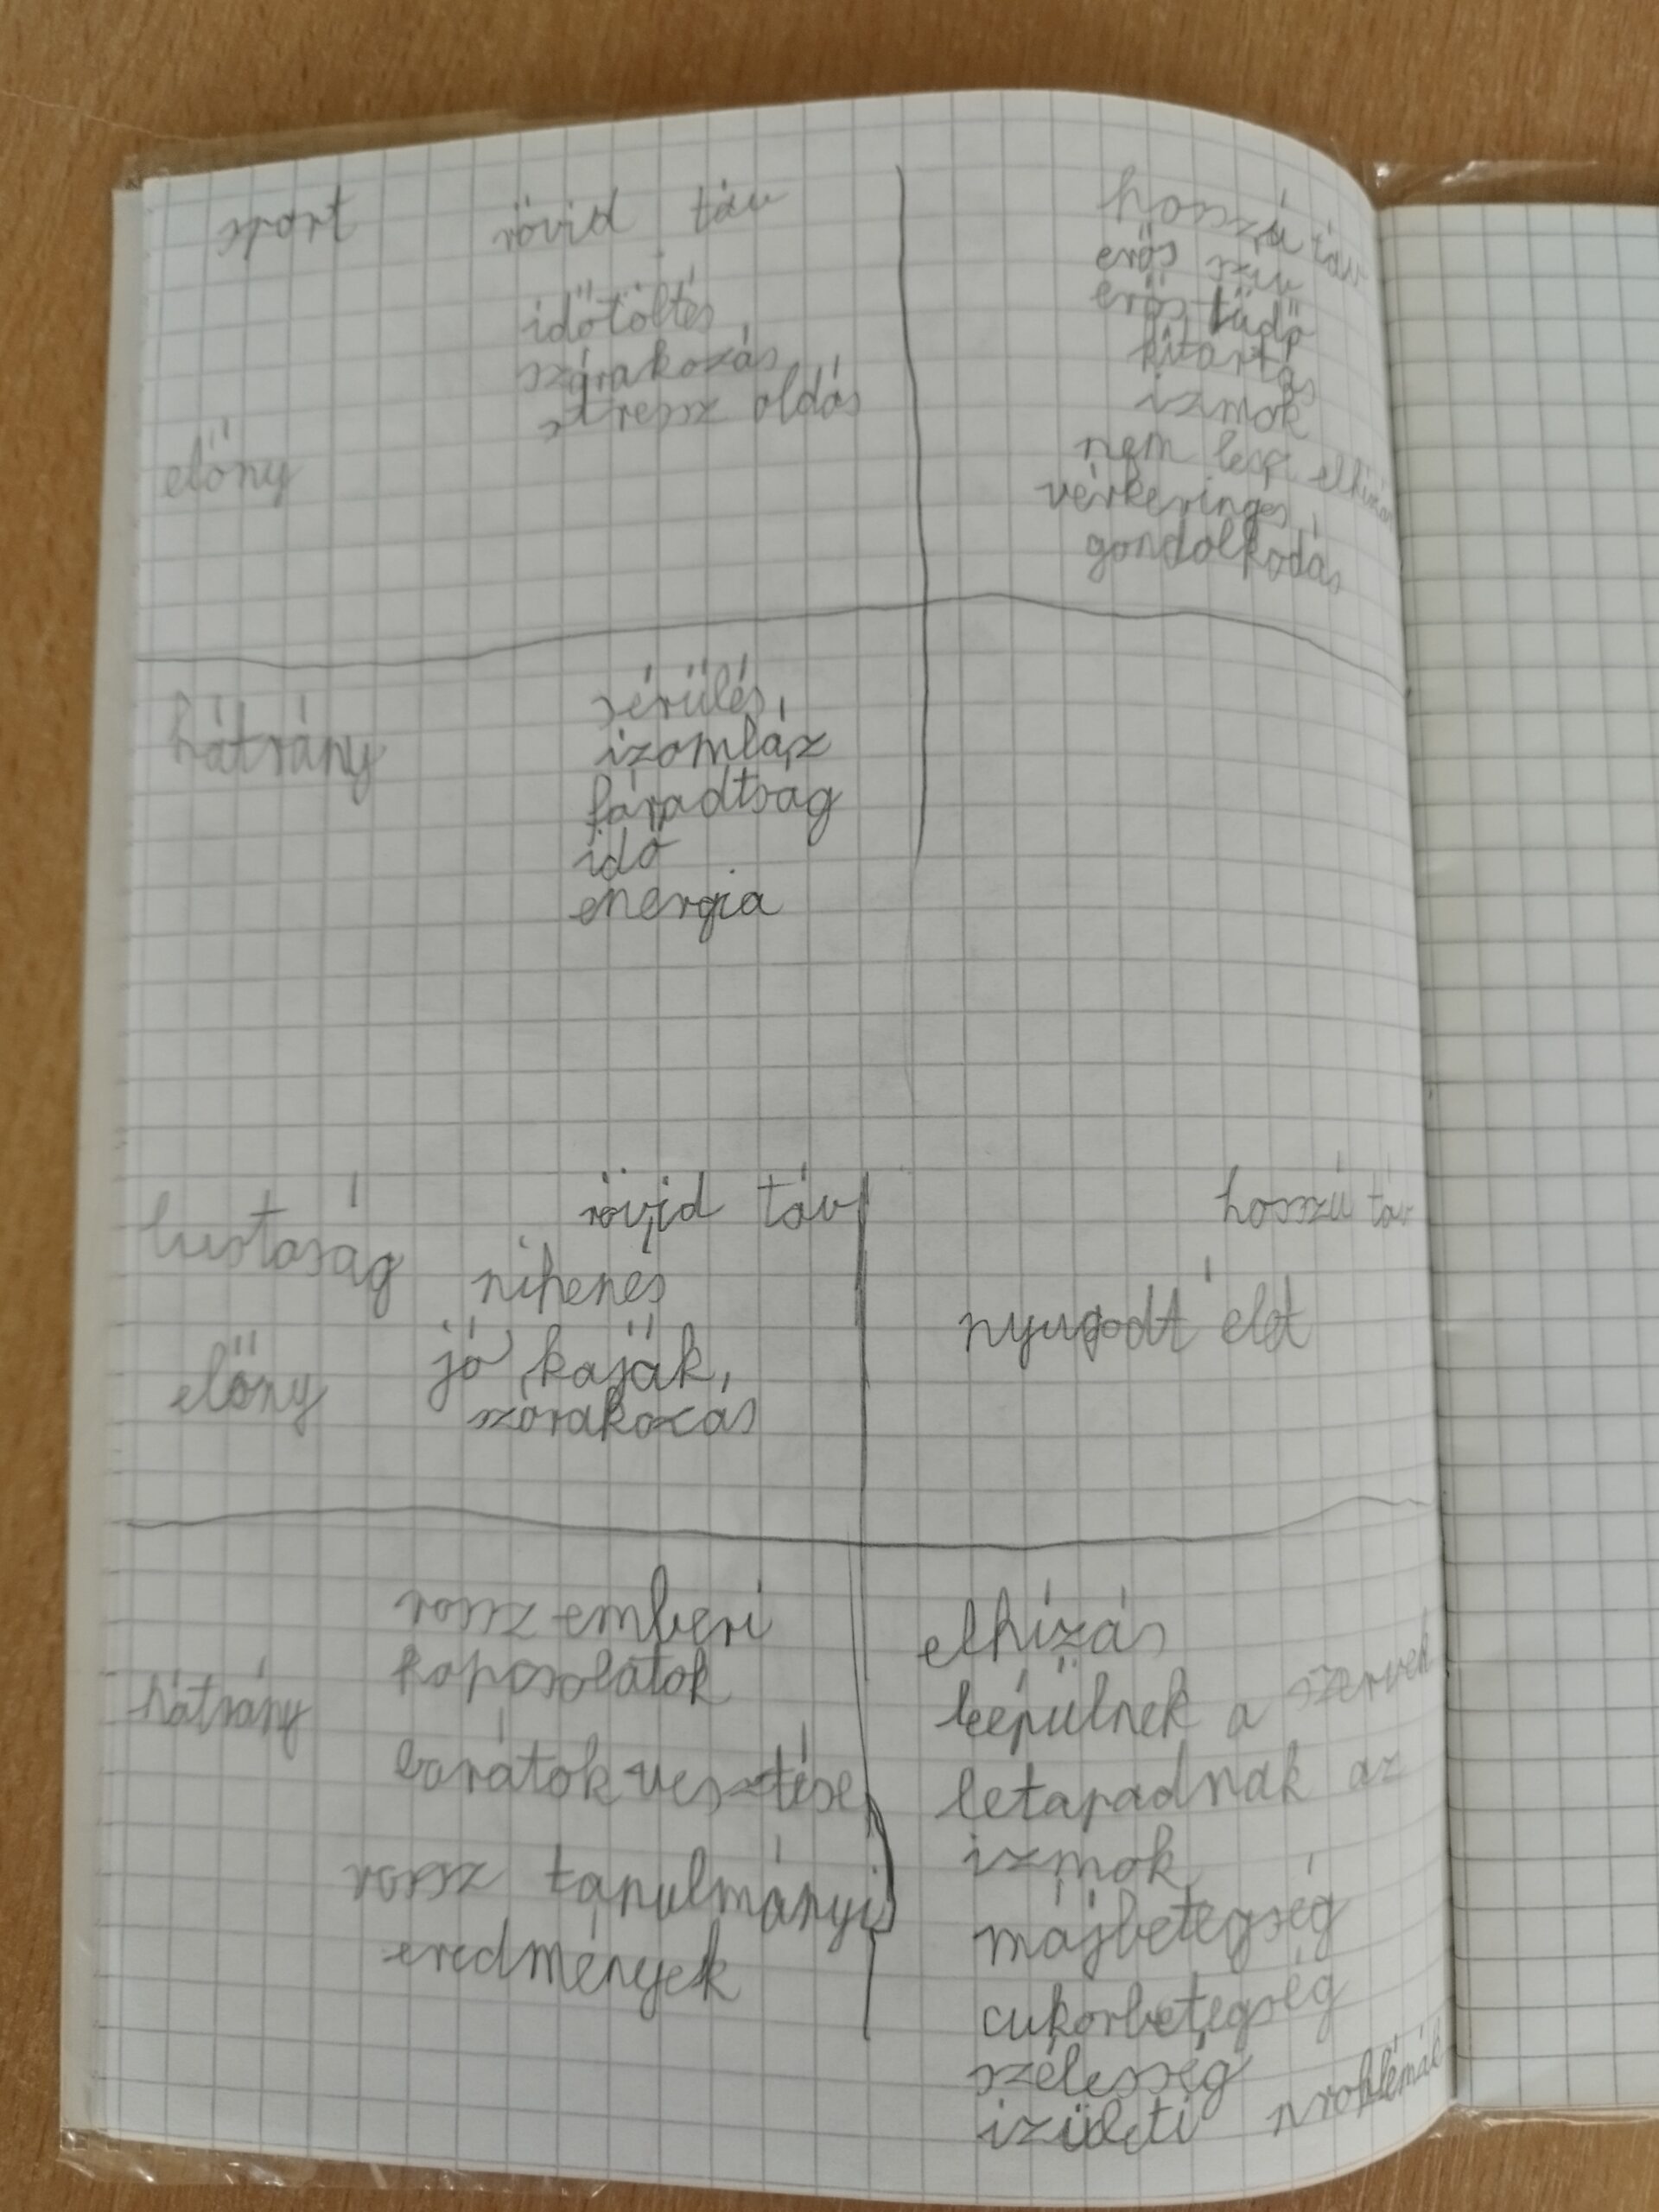 sport rövid táv
időtöltés
szórakozás
stressz oldás
előny
hosszú táv
erős szív
erős tüdő
kitartás
izmok
nem lesz elhízás
vérkeringés
gondolkodás
hátrány
sérülés,
izomláz
fáradtság
idő
energia
lustaság
rövid táv
pihenés
jó kaják,
szórakozás
előny
hosszú táv
nyugodt élet
hátrány
rossz emberi
kapcsolatok
barátok vesztése
rossz tanulmányi
eredmények
elhízás
leépülnek a szervek
letapadnak az
izmok
májbetegség
cukorbetegség
szélesség
izületi problémák